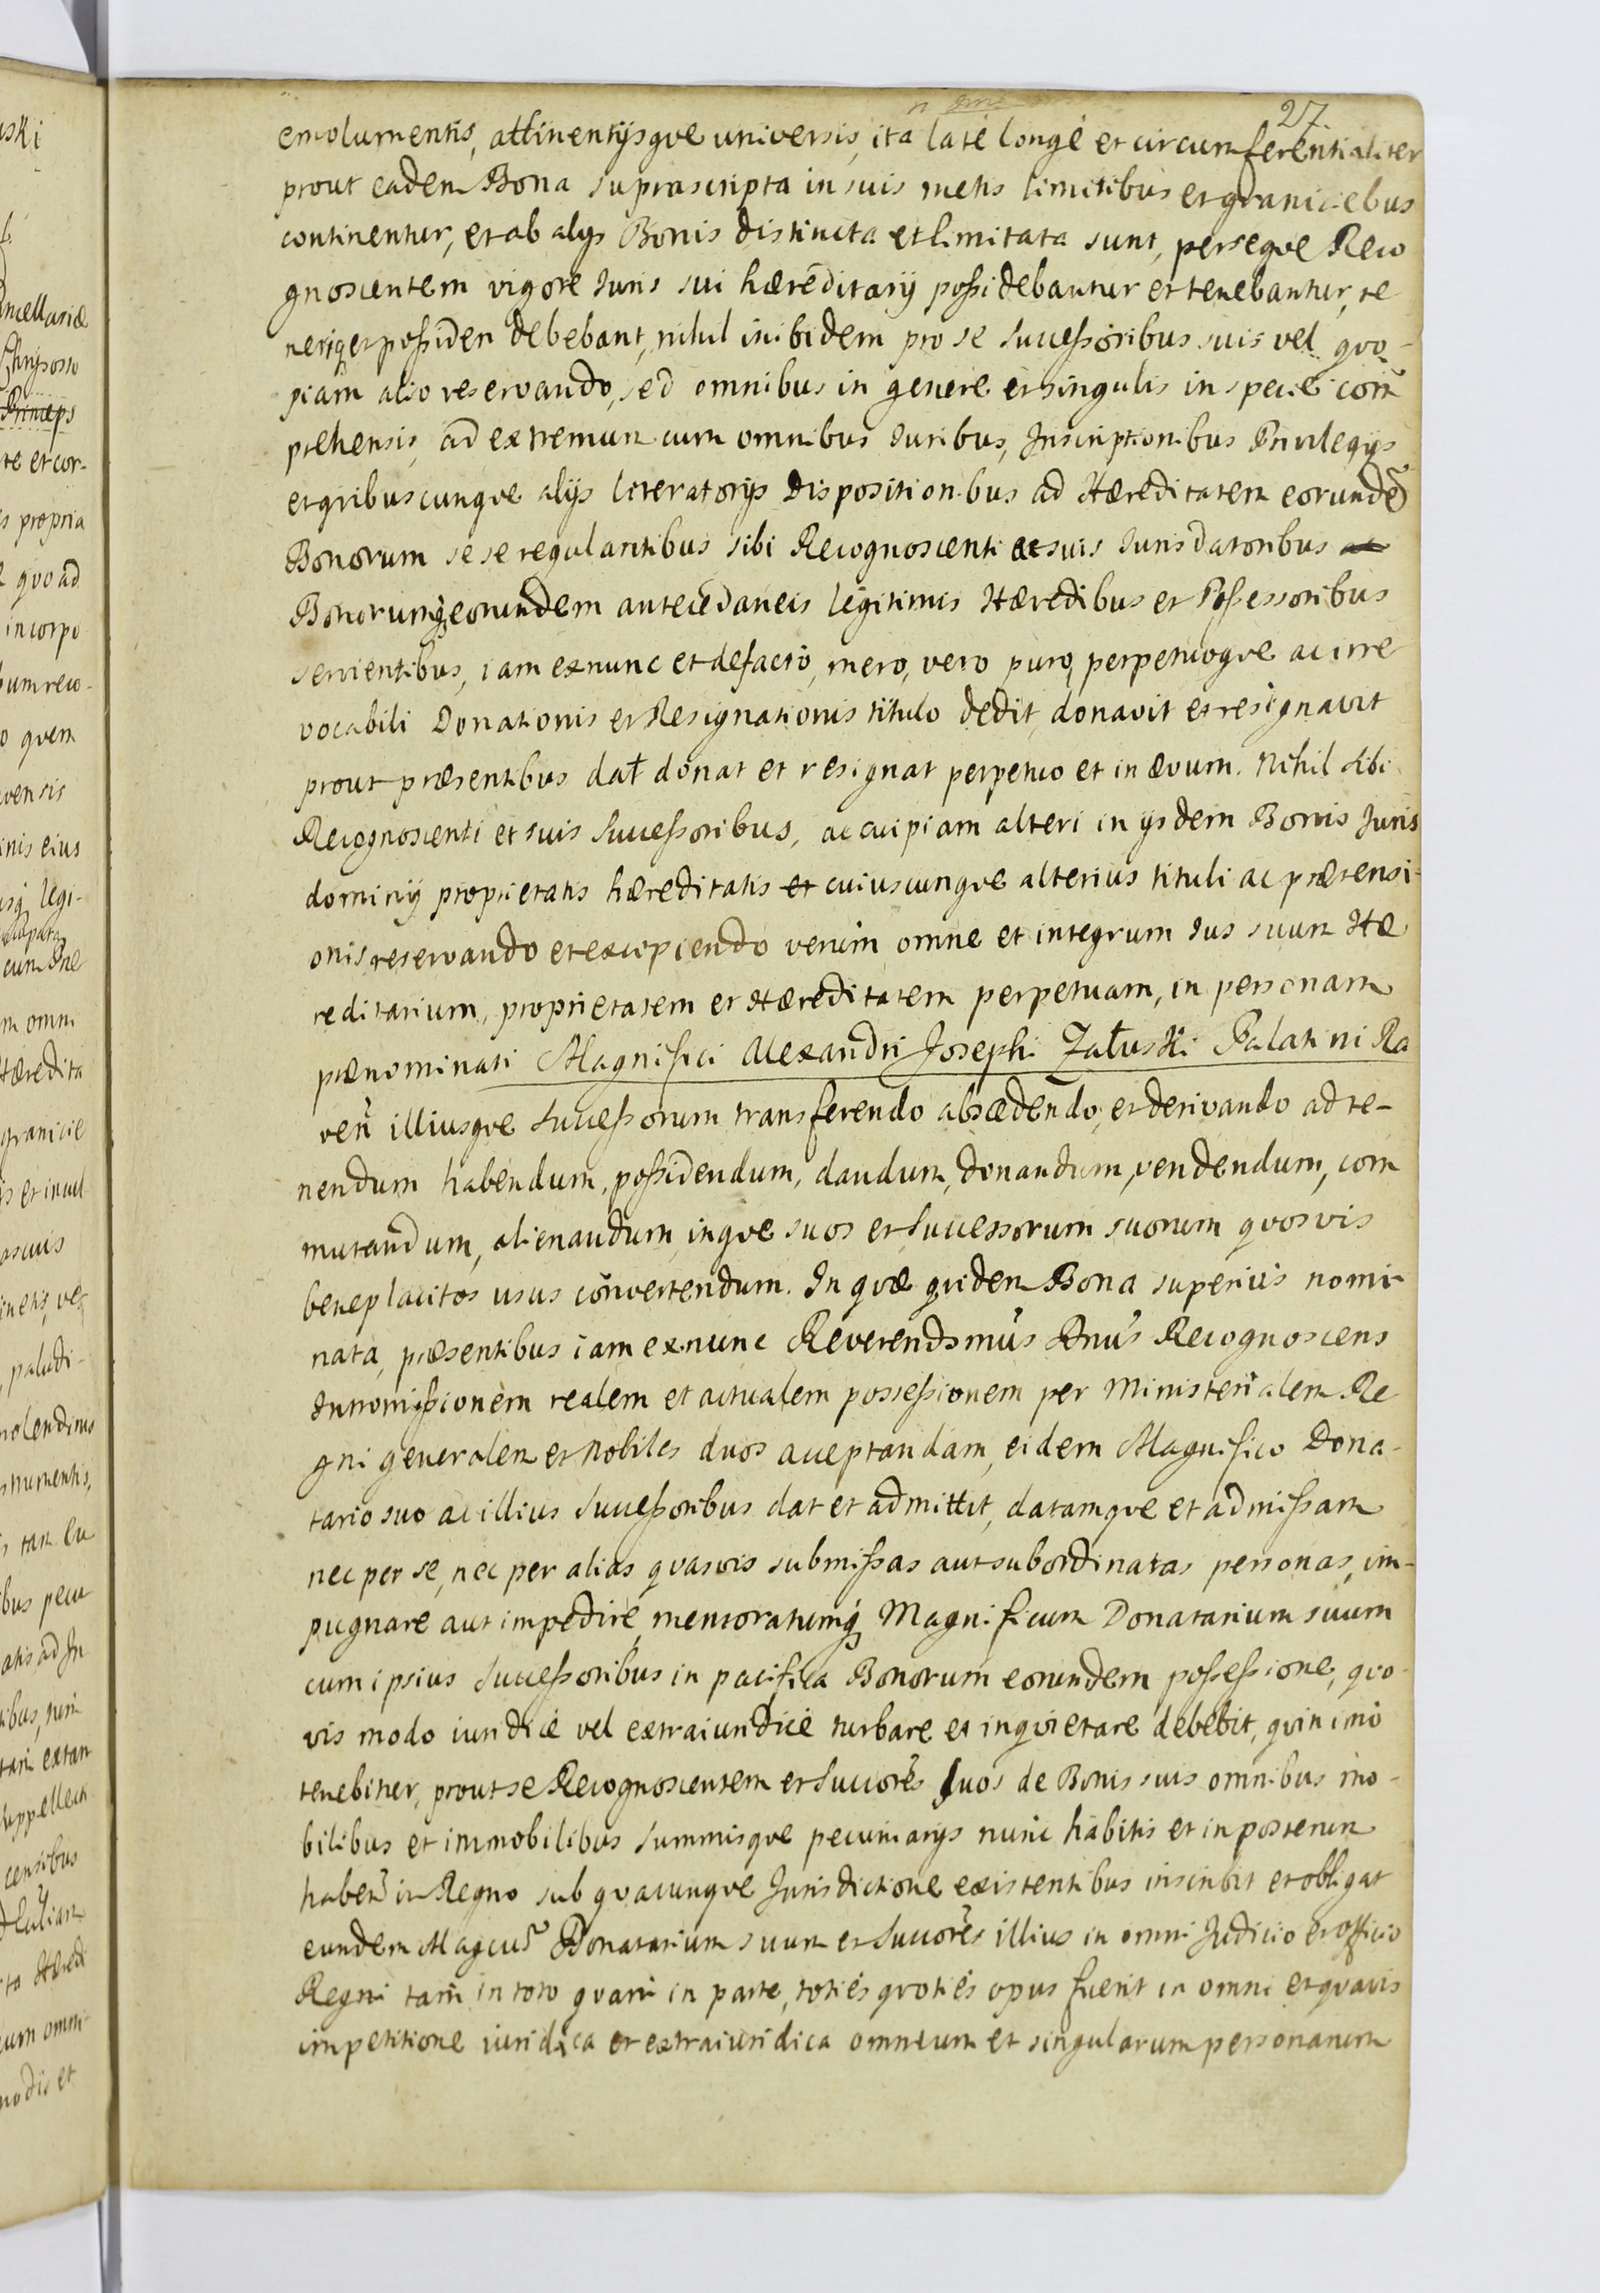 27
emolumentis, attinentijsqve universis, ita laté longé et circumferentialiter
prout eadem Bona suprascripta in suis metis limitibus et graniciebus
continentur, et ab alys Bonis distincta et limitata sunt, perseqve Reco
gnoscentem vigore Juris sui hæreditarij possidebantur et tenebantur, te
neriq et possideri debebant, nihil inibidem pro se Successoribus suis vel qvo-
piam alio reservando, sed omnibus in genere et singulis in specie com
prehensis, ad extremum cum omnibus Juribus, Inscriptionibus Privilegijs
et qvibuscunqve alijs literatorijs Dispositionibus ad Hæreditatem eorundẽ
Bonorum sese regulantibus sibi Recognoscenti et suis Jurisdatoribus ac
Bonorumq eorundem antecedaneis legitimis Hæredibus et Possessoribus
servientibus, iam exnunc et defacto, mero, vero puro, perpetuoqve ac irre
vocabili Donationis et Resignationis titulo dedit, donavit et resignavit
prout præsentibus dat donat et resignat perpetuo et in ævum. Nihil sibi
Recognoscenti et suis Successoribus, ac cuipiam alteri in ysdem Bonis Juris
dominij proprietatis hæreditatis et cuiuscunqve alterius tituli ac prætensi-
onis reservando et excipiendo verùm omne et integrum Jus suum Hæ
reditarium, proprietatem et Hæreditatem perpetuam, in personam
prænominati Magnifici Alexandri Josephi Załuski Palatini Ra
ven̄ illiusqve Successorum transferendo abscædendo, et derivando ad te-
nendum habendum, possidendum, dandum, donandum, vendendum, com
mutandum, alienandum, inqve suos et Successorum suorum qvosvis
beneplacitos usus convertendum. In qvæ qvidem Bona superius nomi-
nata, præsentibus iam exnunc Reverendsmus Dnus Recognoscens
Intromissionem realem et actualem possessionem per Ministerialem Re
gni generalem et Nobiles duos acceptandam, eidem Magnifico Dona-
tario suo ac illius Successoribus dat et admittit, datamqve et admissam
nec per se, nec per alias qvasvis submissas aut subordinatas personas, im-
pugnare aut impedire, memoratumq Magnificum Donatarium suum
cum ipsius Successoribus in pacifica Bonorum eorundem possessione, qvo-
vis modo iuridicè vel extraiuridicè turbare et inqvietare debebit, qvinimò
tenebitur, prout se Recognoscentem et Succorẽs suos de Bonis suis omnibus mo-
bilibus et immobilibus Summisqve pecuniarijs nunc habitis et in posterum
haben̄ in Regno sub qvacunqve Jurisdictione existentibus inscribit et obligat
eundem Magcũ Donatarium suum et Succorẽs illius in omni Judicio et officio
Regni tam in toto qvam in parte, totiés qvotiés opus fuerit in omni et qvavis
impetitione iuridica et extraiuridica omnium et singularum personarum